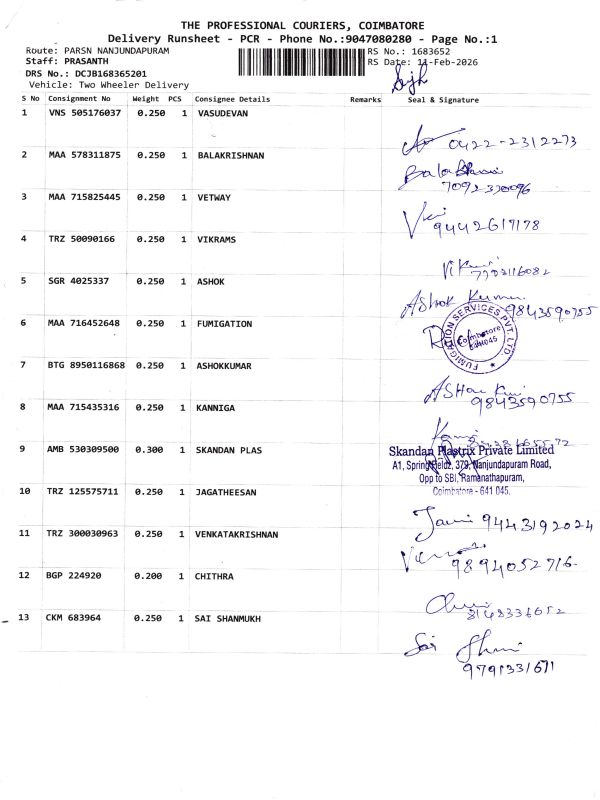 THE PROFESSIONAL COURIERS, COIMBATORE
Delivery Runsheet - PCR - Phone No.:9047080280 - Page No.:1
Route: PARSN NANJUNDAPURAM RS No.: 1683652
Staff: PRASANTH RS Date: 11-Feb-2026
DRS No.: DCJB168365201
Vehicle: Two Wheeler Delivery
S No Consignment No Weight PCS Consignee Details Remarks Seal & Signature
1 VNS 505176037 0.250 1 VASUDEVAN
0422-2312273
2 MAA 578311875 0.250 1 BALAKRISHNAN
3 MAA 715825445 0.250 1 VETWAY
9442617178
4 TRZ 50090166 0.250 1 VIKRAMS
5 SGR 4025337 0.250 1 ASHOK
Ashok Kumar
9843590755
6 MAA 716452648 0.250 1 FUMIGATION
FUMIGATION SERVICES PVT. LTD.
Coimbatore
7 BTG 8950116868 0.250 1 ASHOKKUMAR
9843590755
8 MAA 715435316 0.250 1 KANNIGA
9 AMB 530309500 0.300 1 SKANDAN PLAS
Skandan Plastrix Private Limited
A1, Springfieldz, 379, Nanjundapuram Road,
Opp to SBI, Ramanathapuram,
Coimbatore - 641 045.
10 TRZ 125575711 0.250 1 JAGATHEESAN
9443192024
11 TRZ 300030963 0.250 1 VENKATAKRISHNAN
9894052716
12 BGP 224920 0.200 1 CHITHRA
8148336652
13 CKM 683964 0.250 1 SAI SHANMUKH
Sai
9791331671